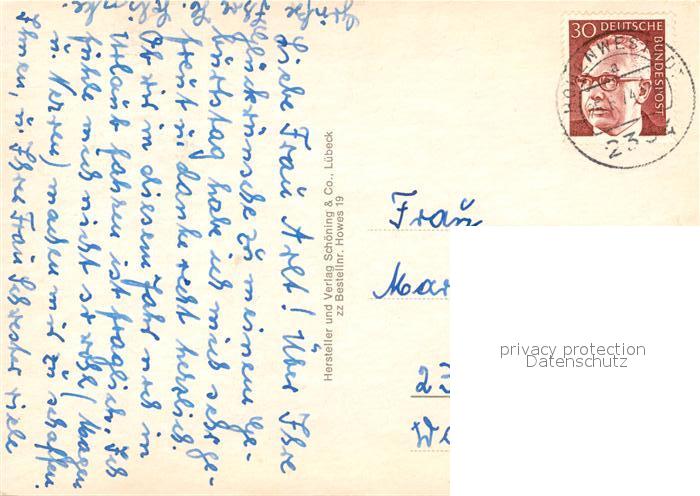 Liebe Frau Arlt! Über Ihre
Glückwünsche zu meinem Ge-
burtstag habe ich mich sehr ge-
freut u. danke recht herzlich.
Ob wir in diesem Jahr noch in
Urlaub fahren ist fraglich. Ich
fühle mich nicht so wohl (Magen
u. Nerven) machen mir zu schaffen.
Ihnen, u. Ihre Frau Schwester viele
Grüße
Hersteller und Verlag Schöning & Co., Lübeck
zz Bestellnr. Howes 19
30 DEUTSCHE
BUNDESPOST
Frau
Mar
23
We
privacy protection
Datenschutz